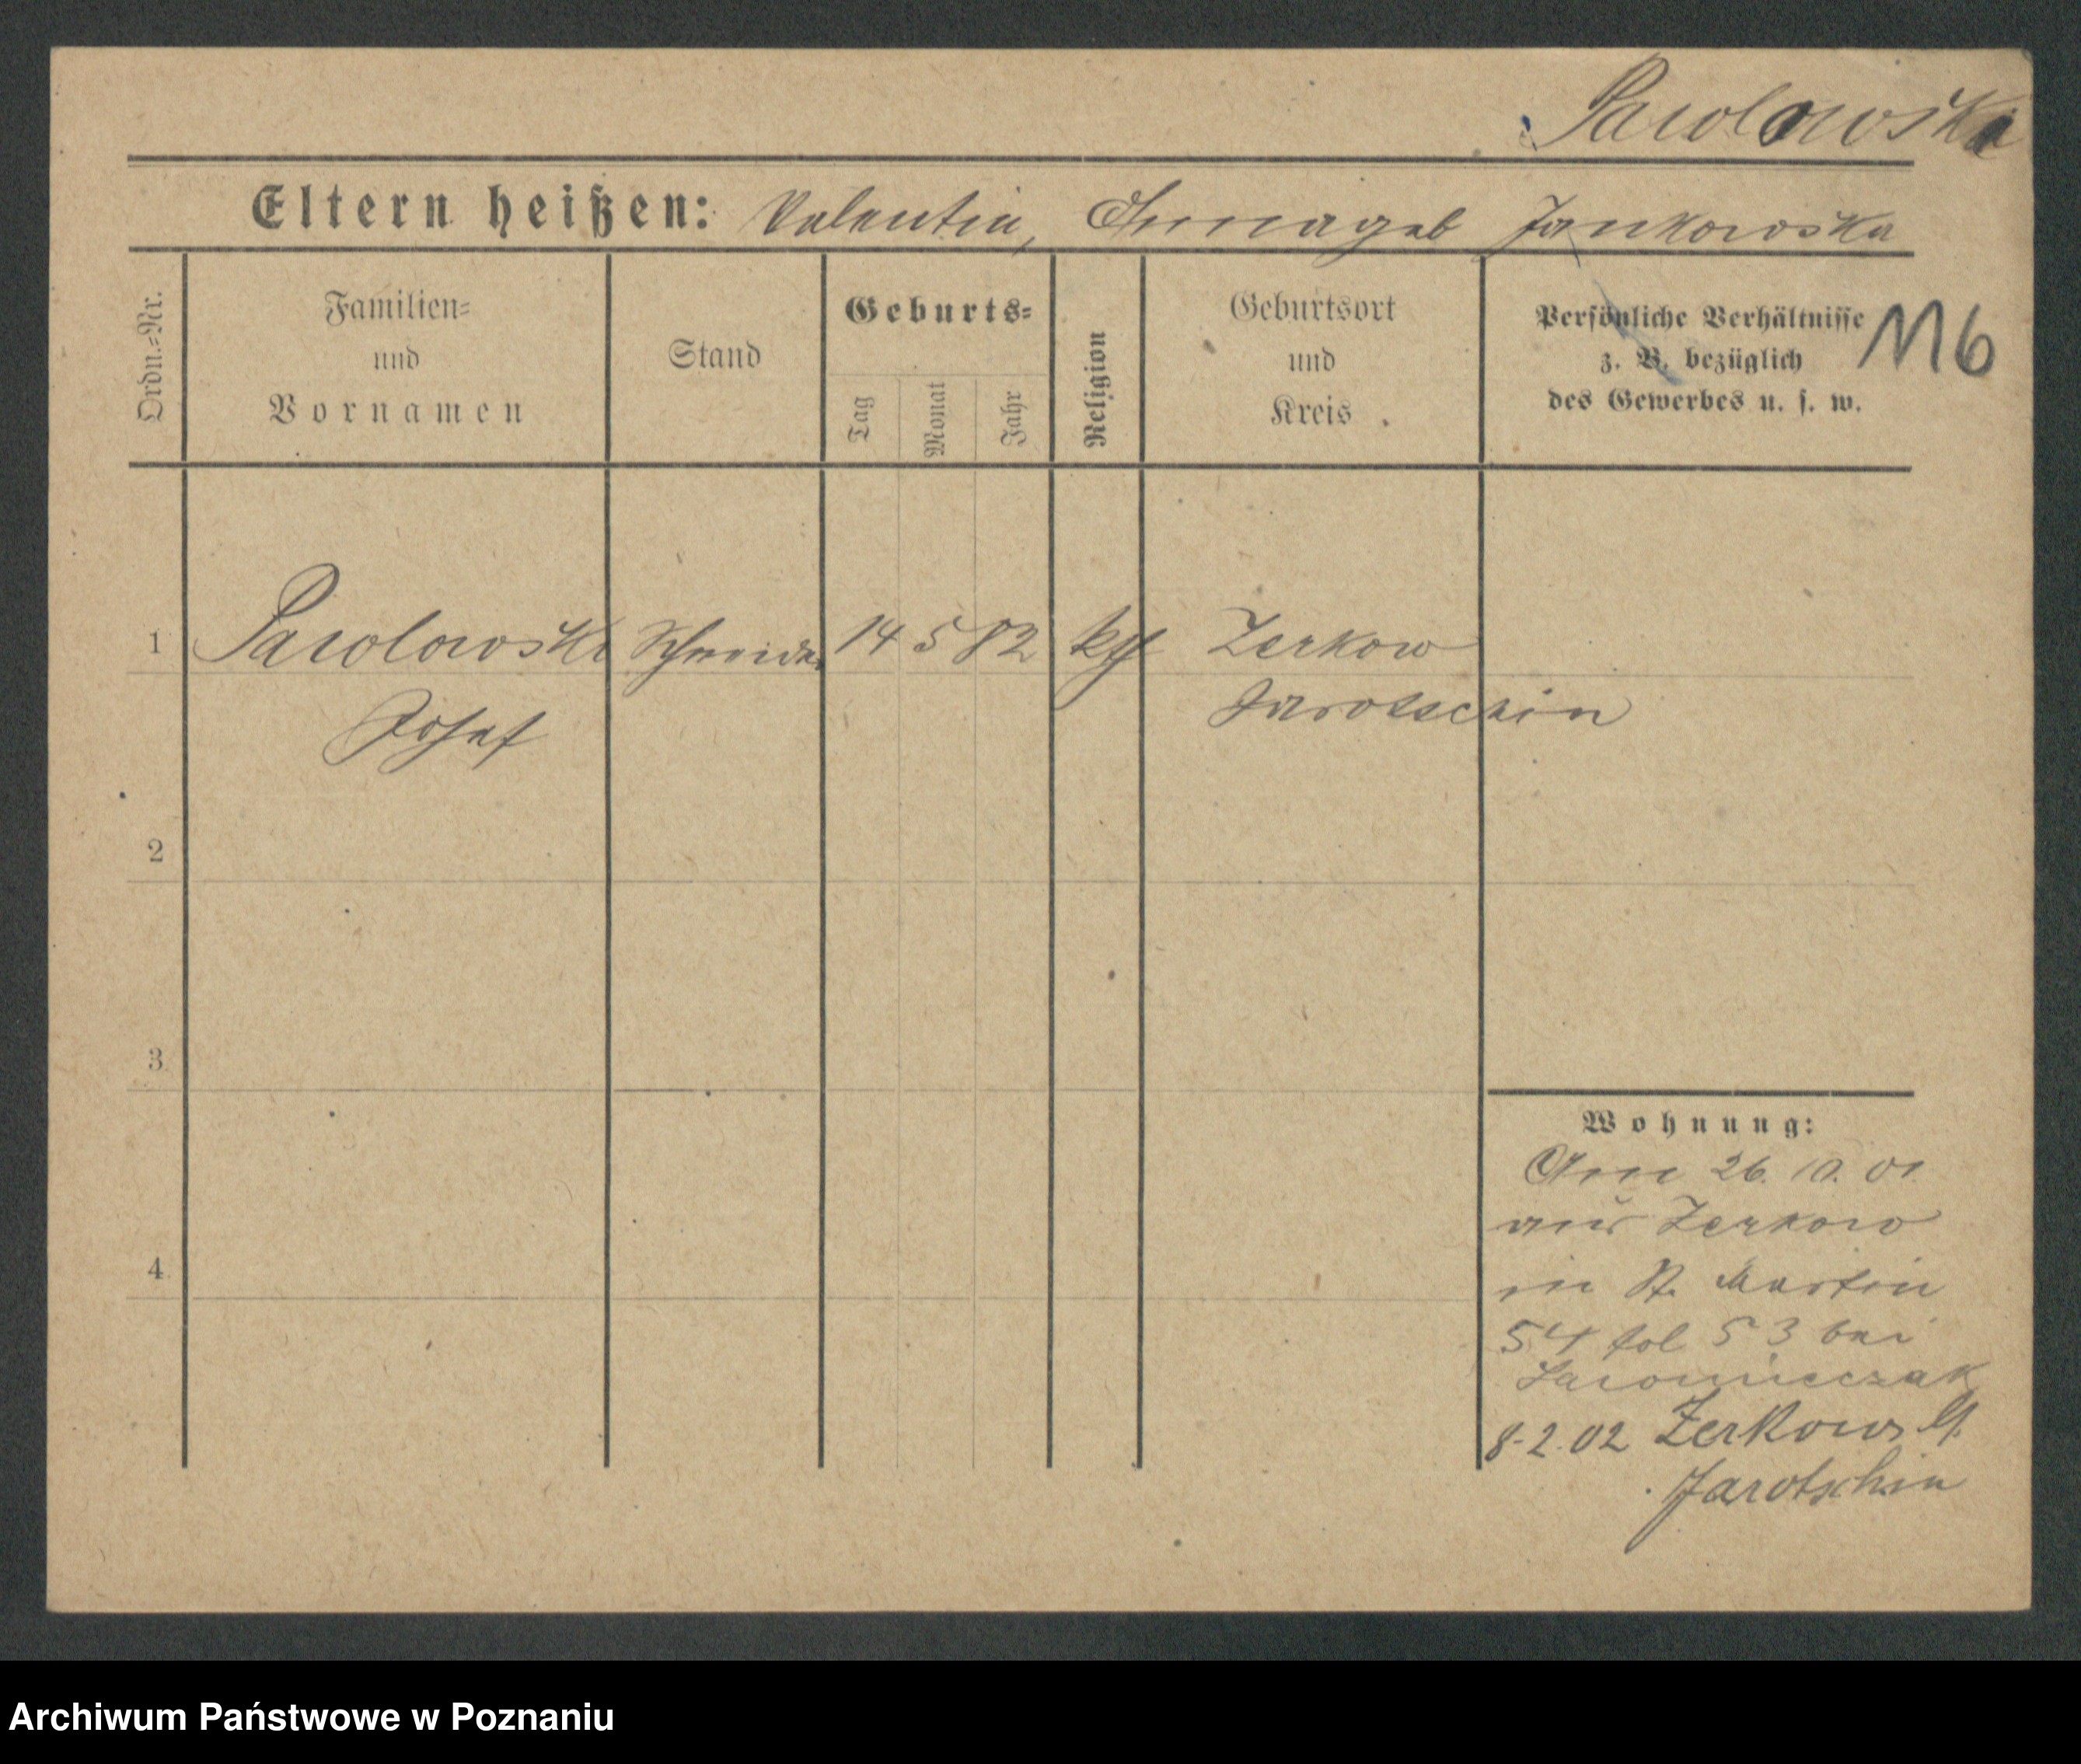 Pawolowska
Eltern heißen: Valentin, Anna geb Jankowska
Ordn.-Nr.
Familien-
und
Vornamen
Stand
Geburts-
Tag
Monat
Jahr
Religion
Geburtsort
und
Kreis
Persönliche Verhältnisse
z. B. bezüglich
des Gewerbes u. s. w.
M6
1 Pawolowski Schneider 14 5 82 kth Zerkow
Josef Jarotschin
2
3
4
Wohnung:
Am 26. 10. 01
aus Zerkow
in St. Martin
54 fol 53 bei
8-2.02 Zerkow
Jarotschin
Archiwum Państwowe w Poznaniu